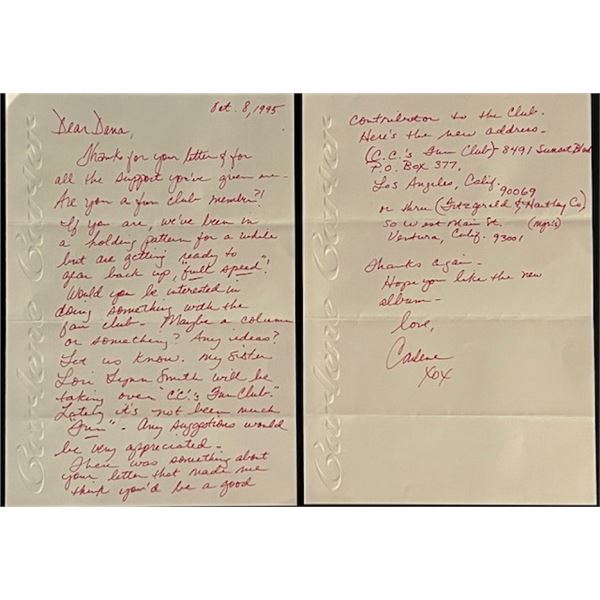 Oct. 8, 1995
Dear Dana,
Thanks for your letter & for
all the support you've given me—
Are you a fun club member?!
If you are, we've been in
a holding pattern for a while
but are getting ready to
gear back up, "full speed"!
Would you be interested in
doing something with the
fan club— Maybe a column
or something? Any ideas?
Let us know. My sister
Lori Lynn Smith will be
taking over "C.C.'s Fun Club."
Lately it's not been much
"Fun"— Any suggestions would
be very appreciated—
There was something about
your letter that made me
think you'd be a good
Carlene Carter
contributor to the Club.
Here's the new address—
(C.C.'s Fun Club) 8491 Sunset Blvd
P.O. Box 377,
Los Angeles, Calif.
90069
or thru (Fitzgerald & Hartley Co)
50 West Main St. (mgrs)
Ventura, Calif. 93001
Thanks again—
Hope you like the new
album—
Love,
Carlene
xox
Carlene Carter